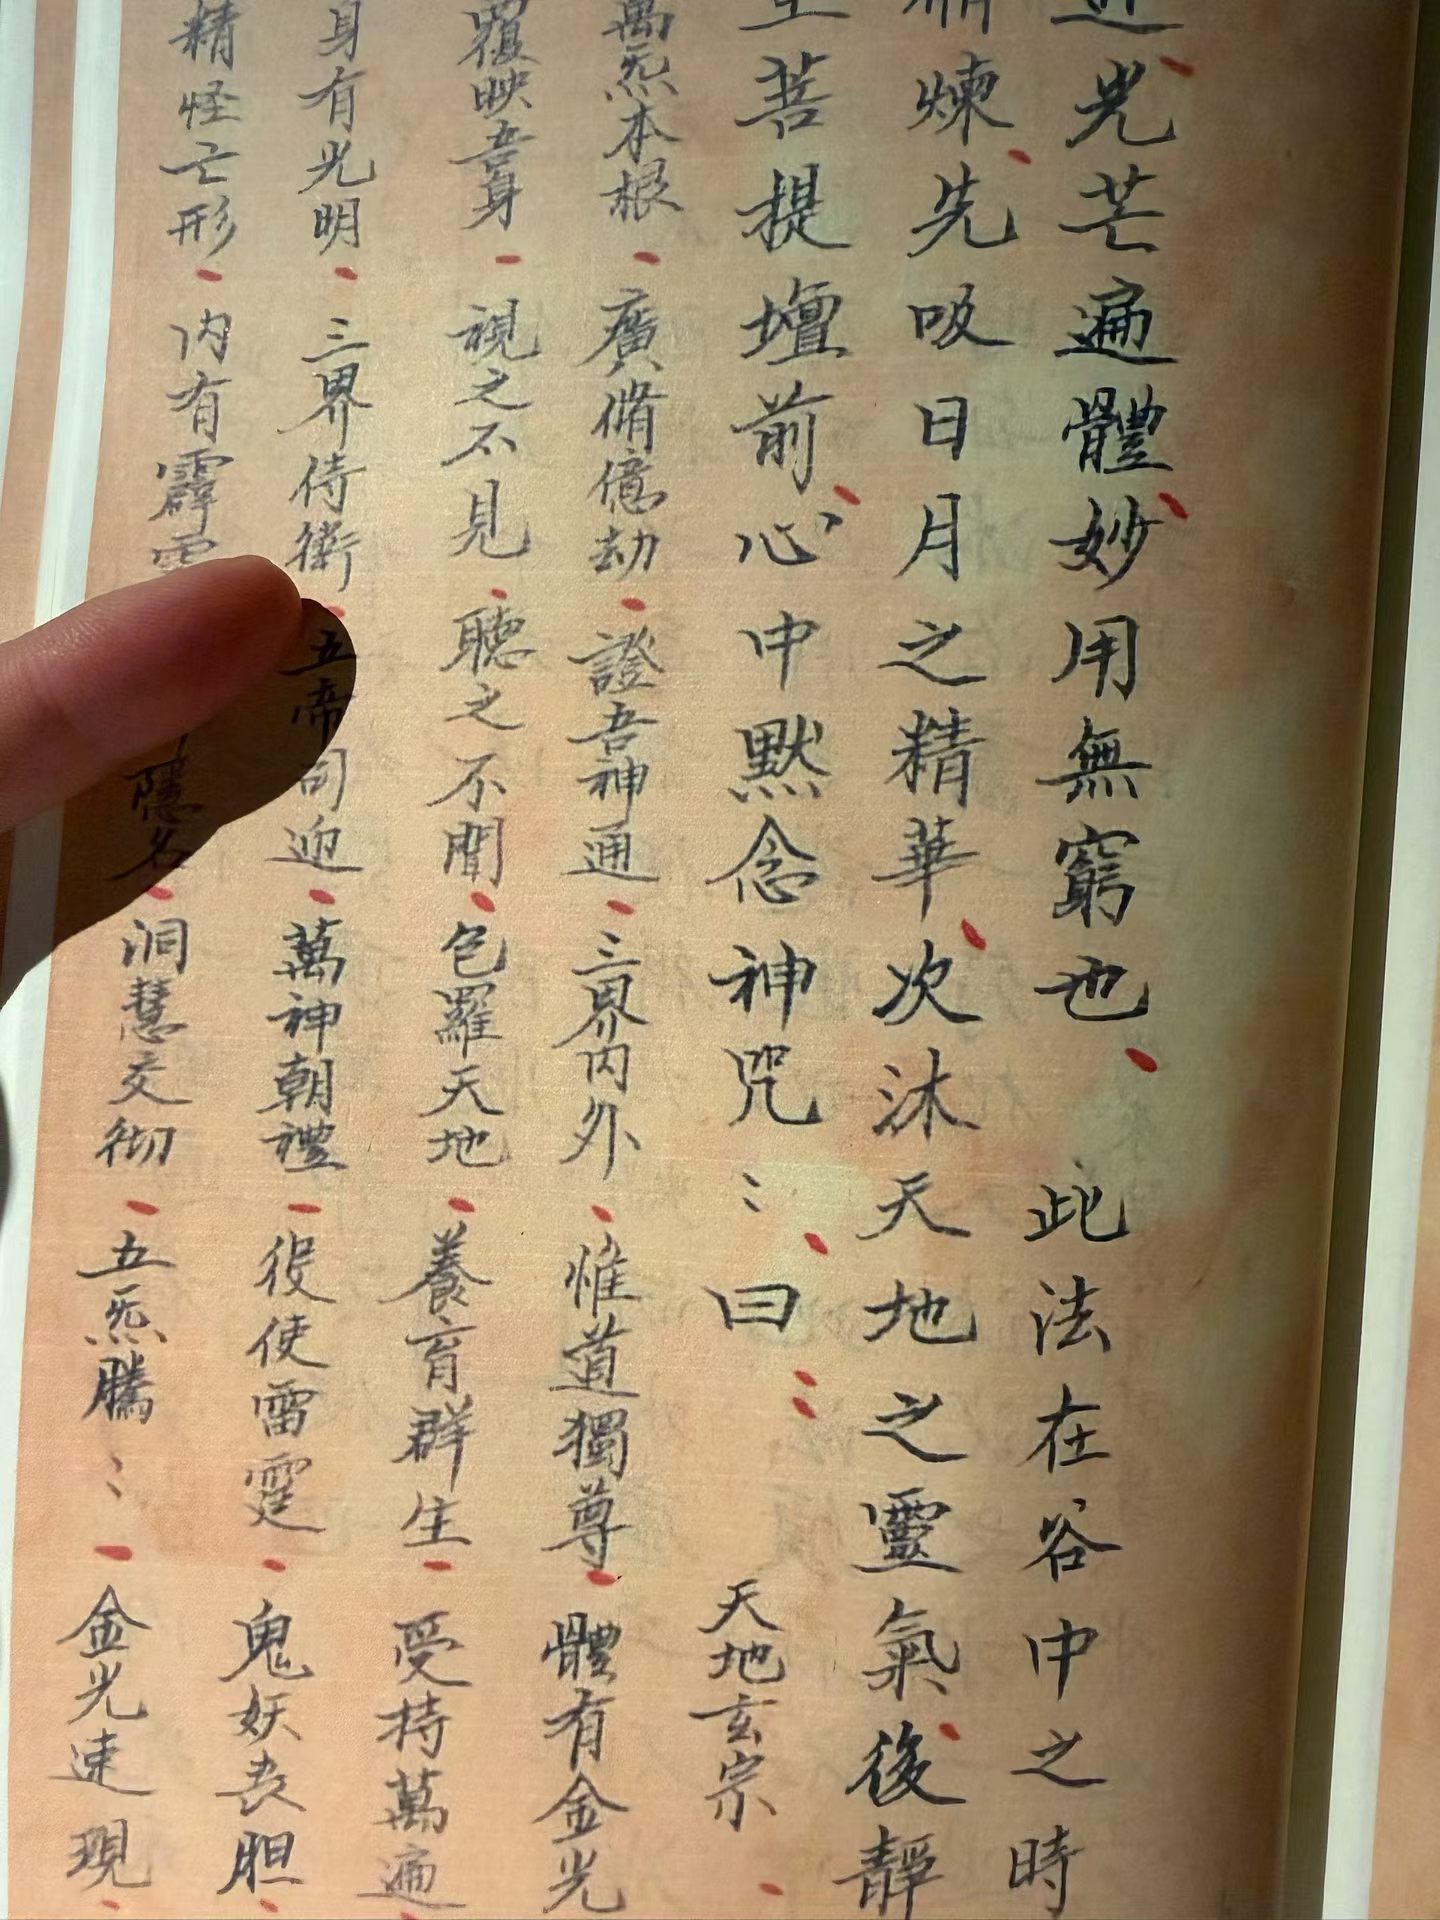 光芒遍體妙用無窮也 此法在谷中之時
煉先吸日月之精華次沐天地之靈氣後靜
菩提壇前心中默念神咒〻曰 天地玄宗
萬炁本根 廣脩億劫 證吾神通 三界内外 惟道獨尊 體有金光
覆映吾身 視之不見 聽之不聞 包羅天地 養育群生 受持萬遍
身有光明 三界侍衛 五帝司迎 萬神朝禮 役使雷霆 鬼妖喪胆
精怪亡形 内有霹 隱名 洞慧交彻 五炁騰〻 金光速現